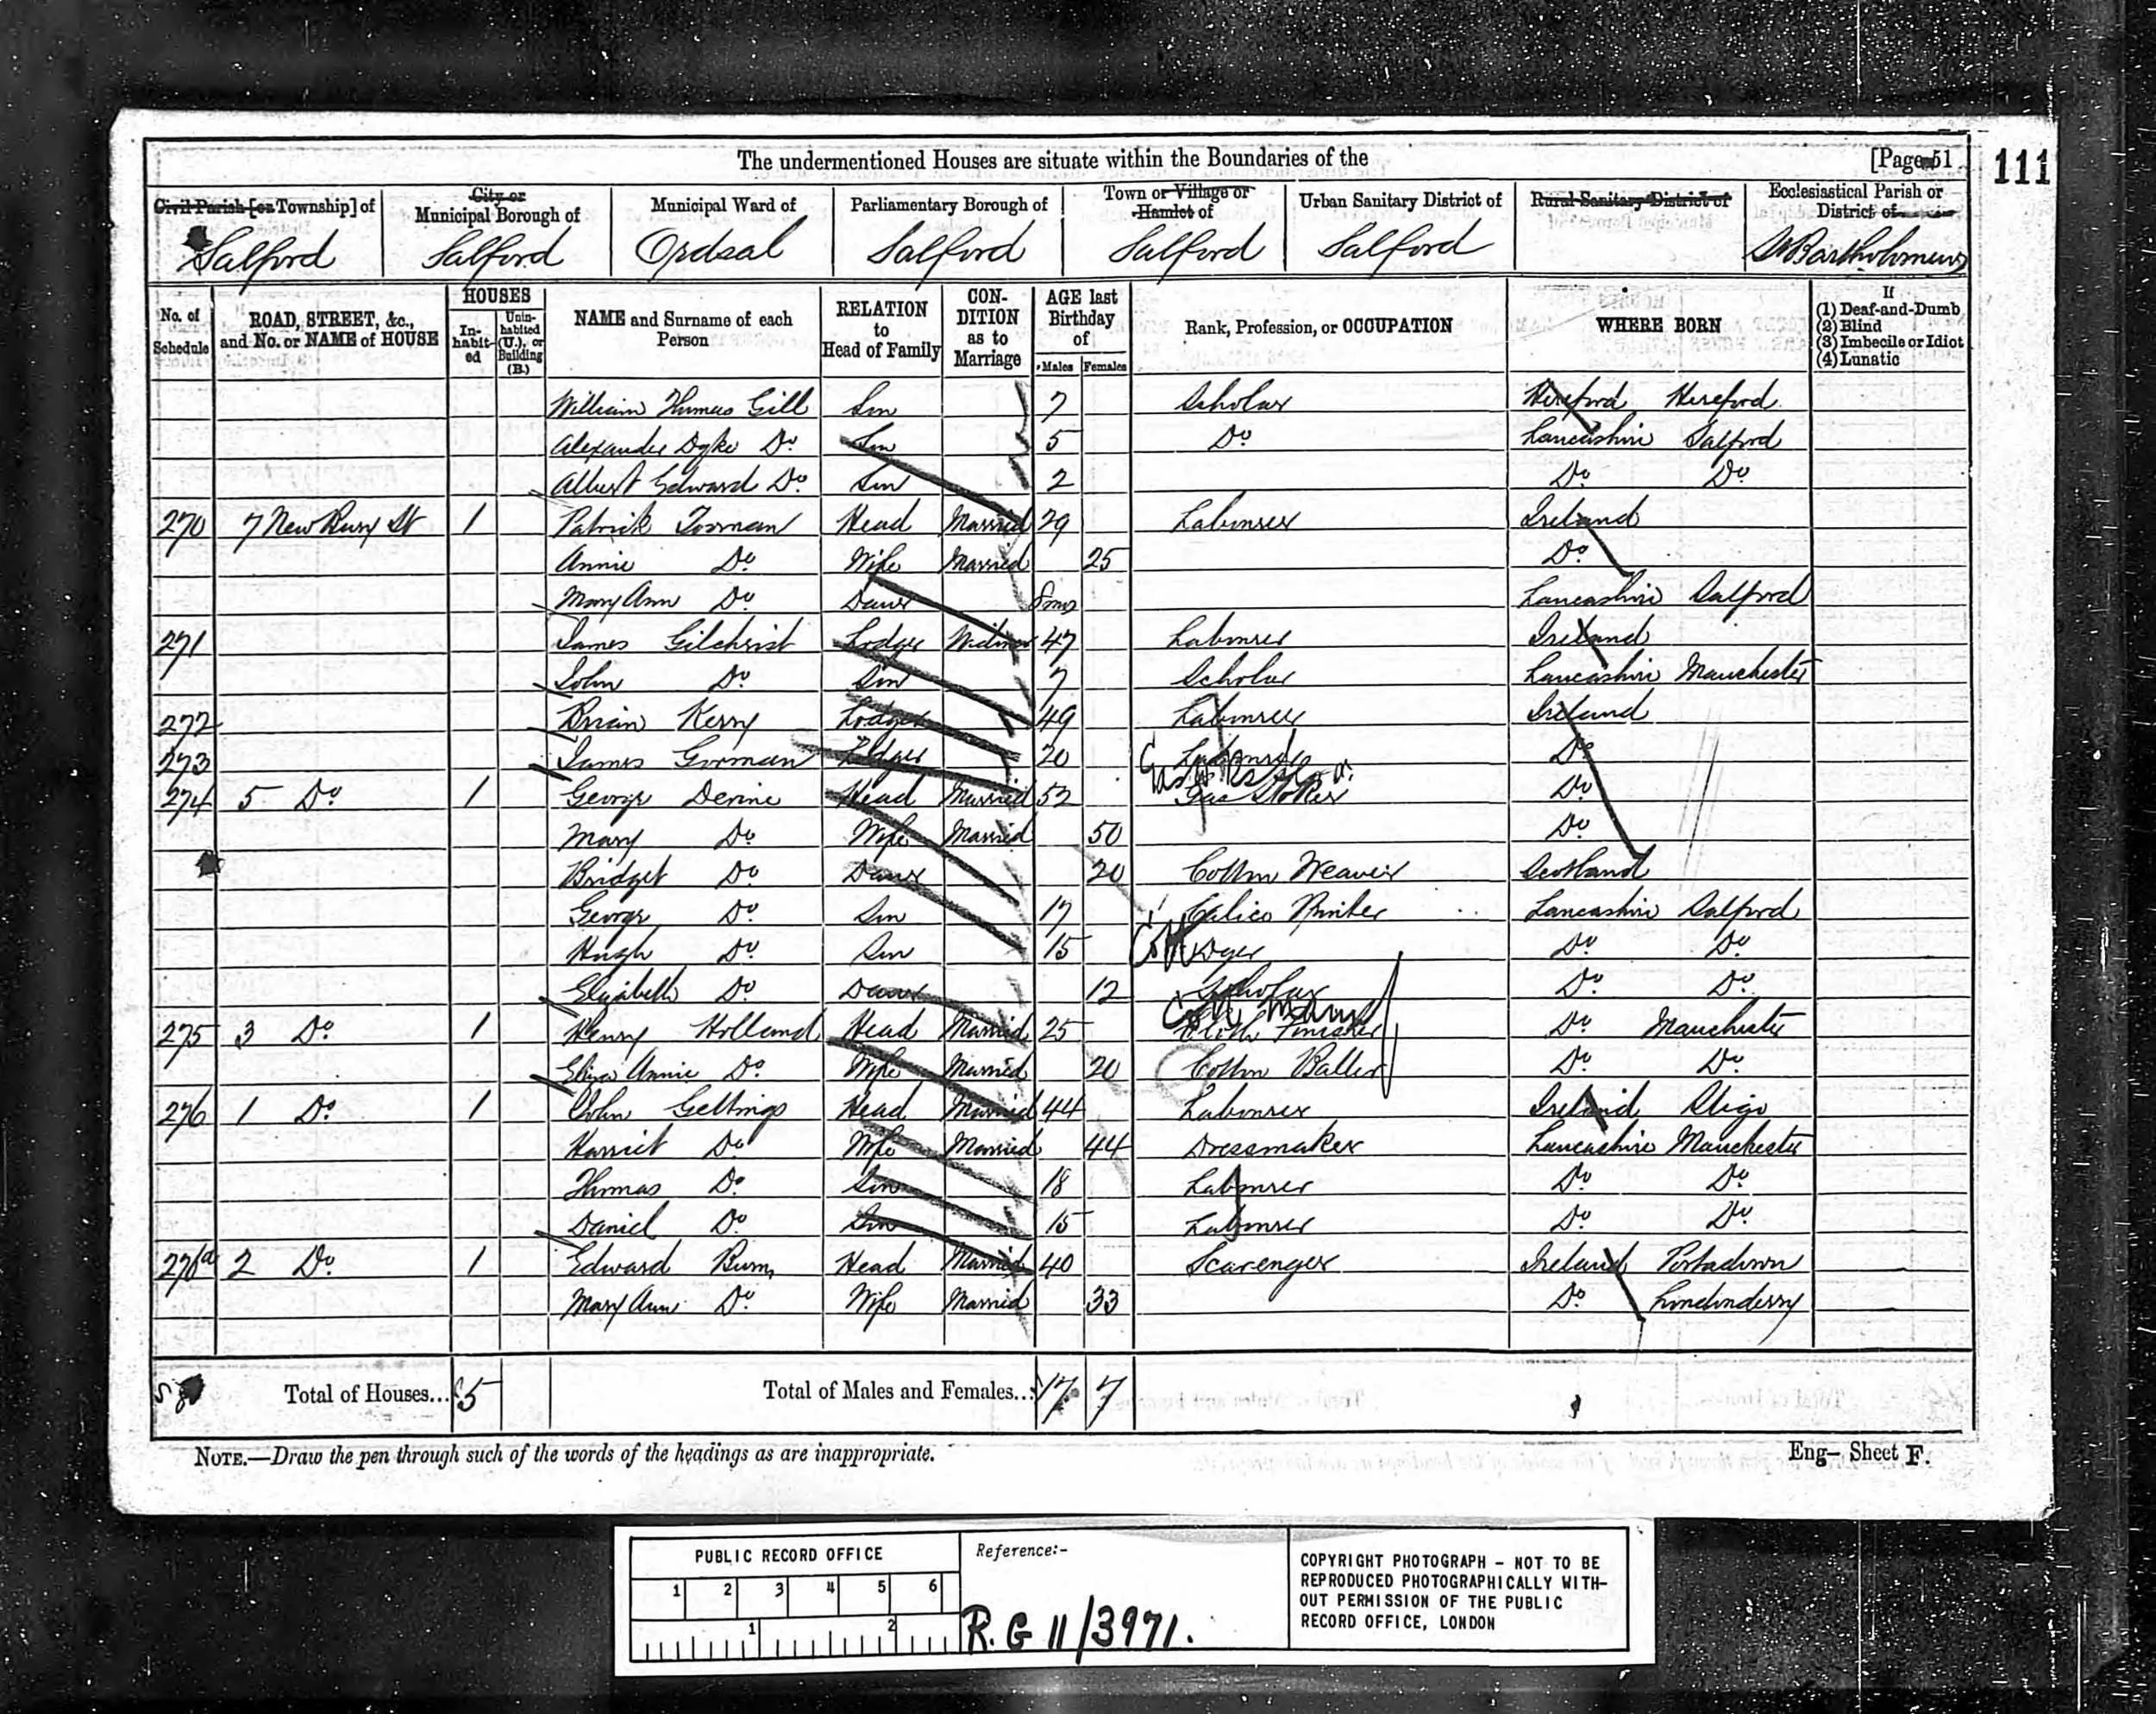 The undermentioned Houses are situate within the Boundaries of the [Page 51
111
Civil Parish [or Township] of City or Municipal Borough of Municipal Ward of Parliamentary Borough of Town or Village or Hamlet of Urban Sanitary District of Rural Sanitary District of Ecclesiastical Parish or District of
Salford Salford Ordsal Salford Salford Salford St Bartholomews
No. of Schedule ROAD, STREET, &c., and No. or NAME of HOUSE HOUSES In-habit-ed Unin-habited (U.), or Building (B.) NAME and Surname of each Person RELATION to Head of Family CON-DITION as to Marriage AGE last Birthday of Males Females Rank, Profession, or OCCUPATION WHERE BORN If (1) Deaf-and-Dumb (2) Blind (3) Imbecile or Idiot (4) Lunatic
William Thomas Gill Son 7 Scholar Hereford Hereford
Alexander Dyke Do Son 5 Do Lancashire Salford
Albert Edward Do Son 2 Do Do
270 7 New Bury St 1 Patrick Head Married 29 Labourer Ireland
Annie Do Wife Married 25 Do
Mary Ann Do Daur 8mos Lancashire Salford
271 James Gilchrist Lodger Widower 47 Labourer Ireland
John Do Son 7 Scholar Lancashire Manchester
272 Brian Kerry Lodger 49 Labourer Ireland
273 James Gorman Lodger 20 Labourer Do
274 5 Do 1 George Devine Head Married 52 Gas Stoker Do
Mary Do Wife Married 50 Do
Bridget Do Daur 20 Cotton Weaver Scotland
George Do Son 17 Calico Printer Lancashire Salford
Hugh Do Son 15 Dyer Do Do
Elizabeth Do Daur 12 Scholar Do Do
275 3 Do 1 Henry Holland Head Married 25 Cloth Finisher Do Manchester
Eliza Annie Do Wife Married 20 Cotton Baller Do Do
276 1 Do 1 John Gettings Head Married 44 Labourer Ireland Sligo
Harriet Do Wife Married 44 Dressmaker Lancashire Manchester
Thomas Do Son 18 Labourer Do Do
Daniel Do Son 15 Labourer Do Do
276a 2 Do 1 Edward Head Married 40 Scavenger Ireland Portadown
Mary Ann Do Wife Married 33 Do Londonderry
Total of Houses... 5 Total of Males and Females... 17 7
NOTE.—Draw the pen through such of the words of the headings as are inappropriate.
Eng— Sheet F.
PUBLIC RECORD OFFICE
1 2 3 4 5 6
1 2
Reference:-
R.G 11/3971.
COPYRIGHT PHOTOGRAPH - NOT TO BE
REPRODUCED PHOTOGRAPHICALLY WITH-
OUT PERMISSION OF THE PUBLIC
RECORD OFFICE, LONDON